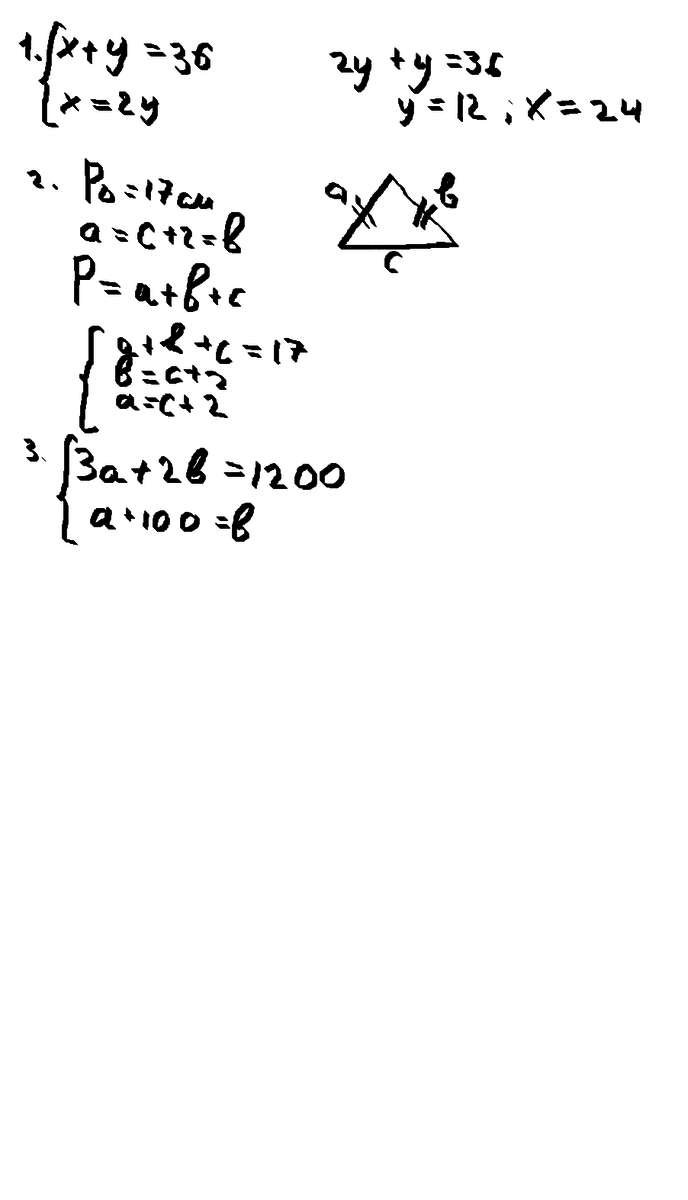 1. { x + y = 36
x = 2y
2y + y = 36
y = 12 ; x = 24
2. P△ = 17 см
a = c + 2 = в
P = a + в + c
a в
c
{ a + в + c = 17
в = c + 2
a = c + 2
3. { 3a + 2в = 1200
a + 100 = в